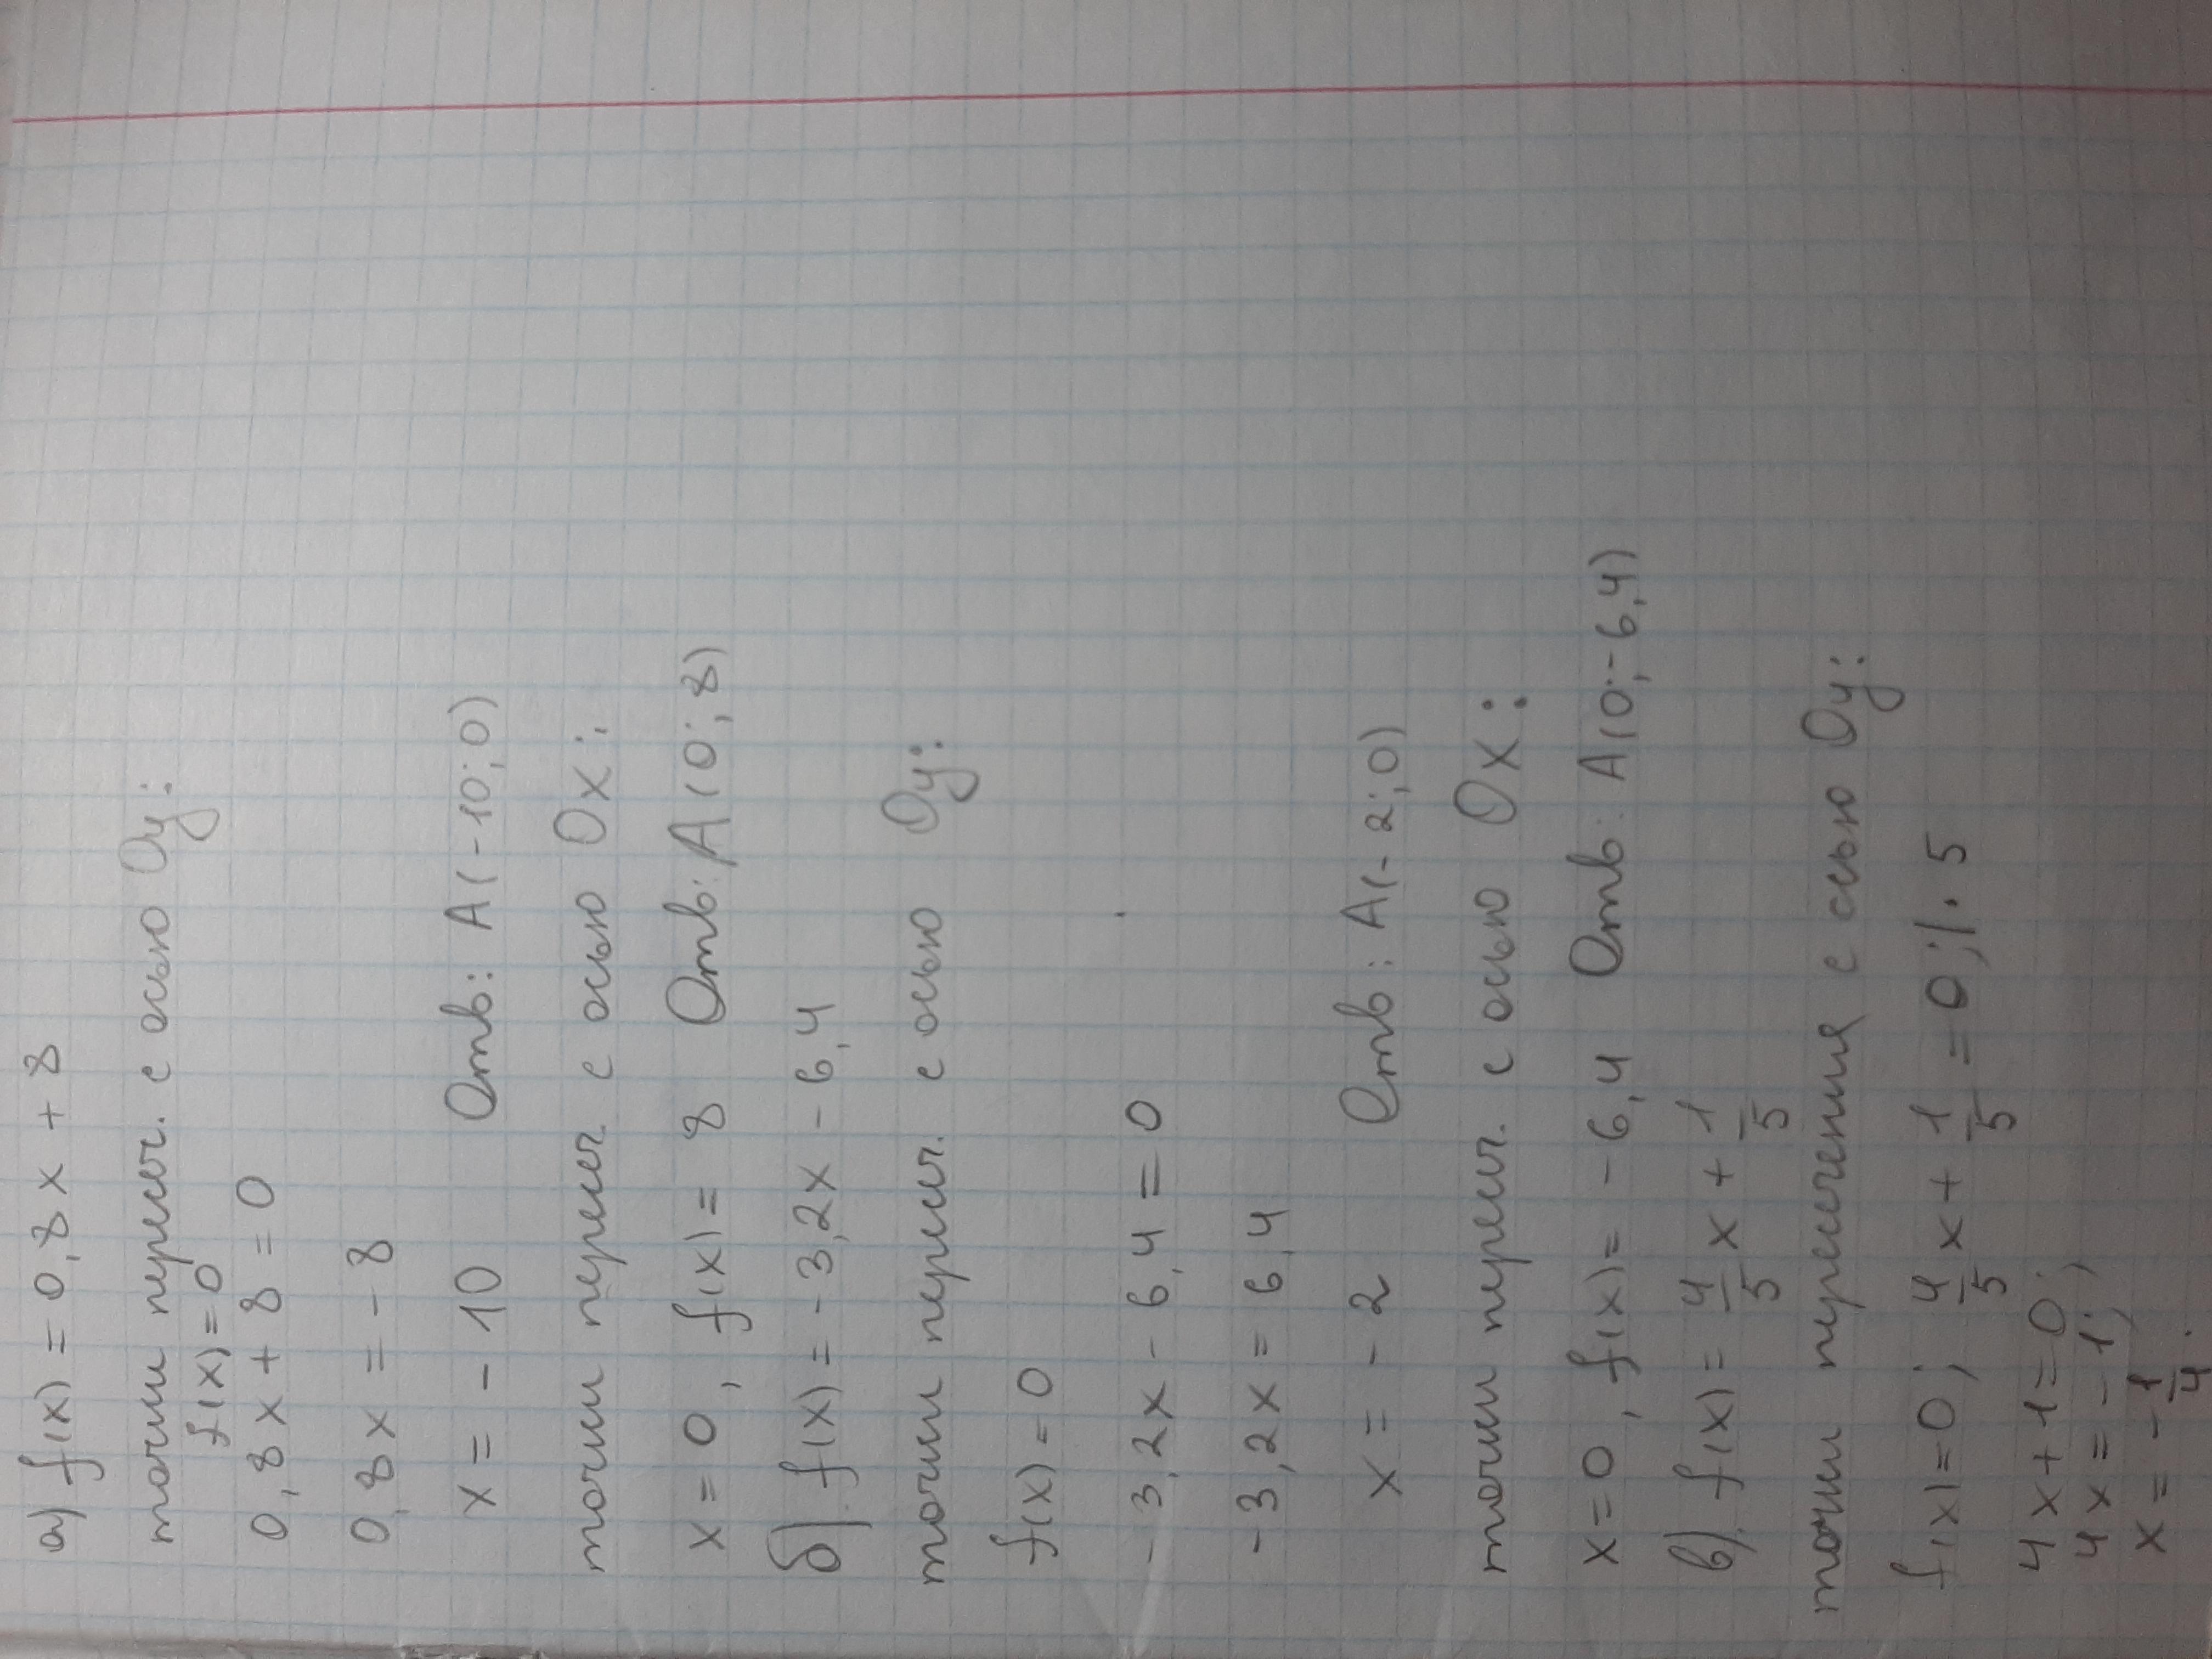 а) f(x) = 0,8x + 8
точки пересеч. с осью Oy:
f(x)=0
0,8x + 8 = 0
0,8x = - 8
x = - 10 Отв: A(-10;0)
точки пересеч. с осью Ox:
x = 0, f(x) = 8 Отв: A(0;8)
б) f(x) = - 3,2x - 6,4
точки пересеч. с осью Oy:
f(x) = 0
- 3,2x - 6,4 = 0
- 3,2x = 6,4
x = - 2 Отв: A(-2;0)
точки пересеч. с осью Ox:
x=0, f(x)= - 6,4 Отв: A(0;-6,4)
в) f(x)= 4/5 x + 1/5
точки пересечения с осью Oy:
f(x)=0; 4/5 x + 1/5 = 0; |·5
4x+1=0;
4x=-1;
x = - 1/4.